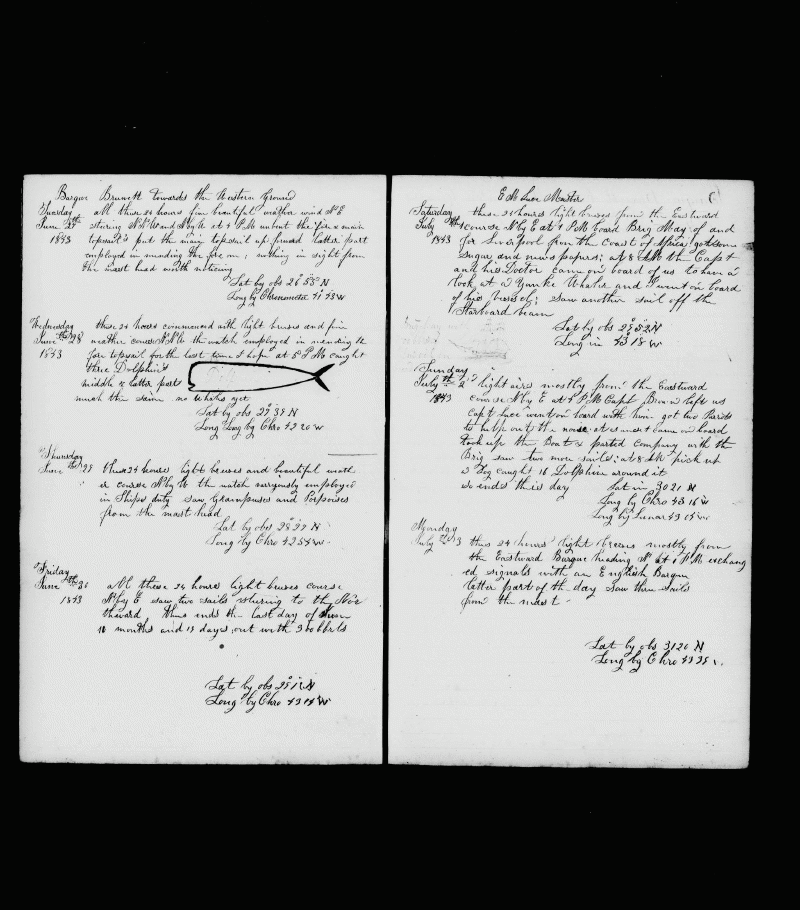 Barque Brunett towards the Western Ground
Tuesday all these 24 hours fine beautiful weather wind NE
June 27th stering NNW and N by W at 5 PM unbent the fore & main
1843 topsail & put the main topsail up forward latter part
employed in mending the fore one; nothing in sight from
the mast head worth noticing
Lat by obs 26 55 N
Long by Chronometer 41 43 W
Wednesday these 24 hours commenced with light breuses and fine
June the 28 weather course N by W the watch employed in mending the
1843 fore topsail for the last time I hope at 5 PM caught
three Dolphins
middle & latter part
much the same no whales yet
Lat by obs 27 35 N
Long by Chro 42 20 W
Thursday
June the 29 these 24 hours light breuses and beautiful weath
er course N by W the watch variously employed
in Ships duty saw Grampuses and Porpoises
from the mast head
Lat by obs 28 29 N
Long by Chro 42 54 W
Friday
June the 30 all these 24 hours light breuses course
1843 N by E saw two sails stering to the Nor
theward thus ends the last day of June
10 months and 13 days out with 300 bbrls
Lat by obs 29 1 N
Long by Chro 43 14 W
E M Luce Master
Saturday these 24 hours light breuses from the Eastward
July the course N by E at 1 PM board Brig May of and
1843 for Liverpool from the Coast of Africa; got some
Sugar and news papers; at 8 AM the Capt
and his Doctor came on board of us to have a
look at a Yankee Whaler and I went on board
of his vessel; saw another sail off the
Starboard beam
Lat by obs 29 52 N
Long in 43 18 W
Sunday
July the 2 light airs mostly from the Eastward
1843 course N by E at 4 PM Capt left us
Capt Luce went on board with him got two Parrots
to help out the noise at sunset came on board
took up the Boat & parted company with the
Brig saw two more sails; at 8 AM pick up
a Log caught 16 Dolphin around it
so ends this day Lat in 30 21 N
Long by Chro 43 16 W
Long by Lunar 43 14 W
Monday
July the 3 these 24 hours light breeus mostly from
the Eastward Barque heading N at 1 PM exchang
ed signals with an English Barque
latter part of the day saw three sails
from the mast
Lat by obs 31 20 N
Long by Chro 43 35